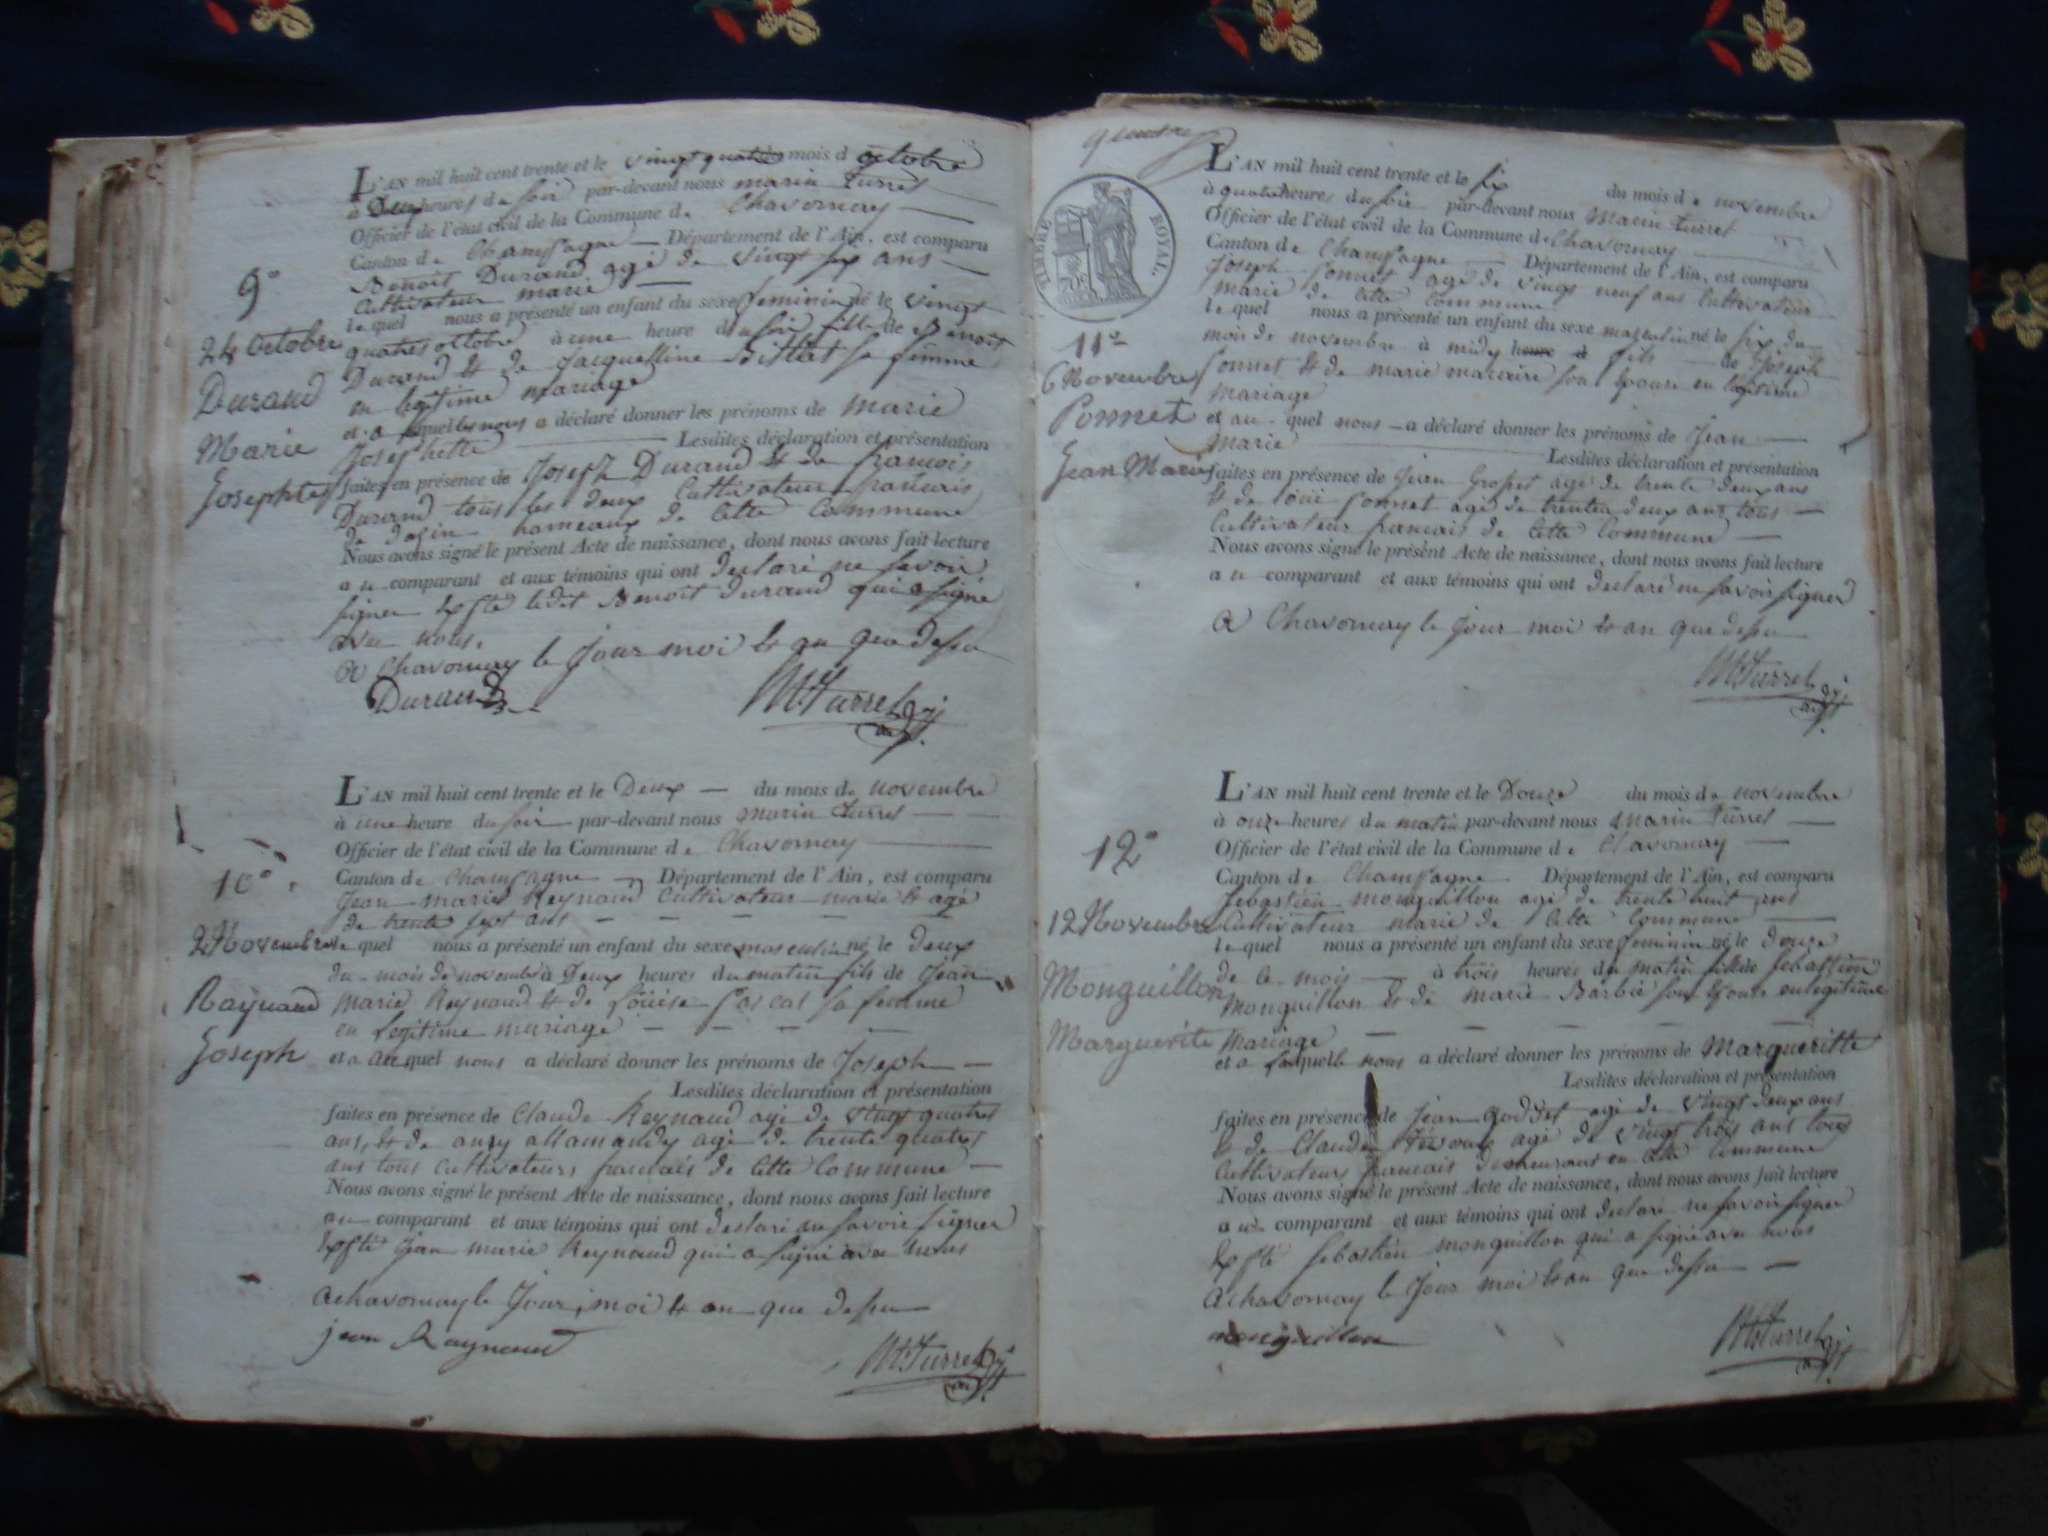 9°
24 octobre
Durand
Marie
Josephte
L'AN mil huit cent trente et le vingt quatre du mois d octobre
à Deux heures du soir par-devant nous marin turrel
Officier de l'état civil de la Commune de Chavornay
Canton de Champagne Département de l'Ain, est comparu
Benoit Durand agé de vingt six ans
Cultivateur marié
lequel nous a présenté un enfant du sexe feminin né le vingt
quatre octobre à une heure du soir fille de Benoit
Durand et de Jacquelline Billiat sa femme
en legitime mariage
et a laquelle nous a déclaré donner les prénoms de marie
Josephette Lesdites déclaration et présentation
faites en présence de Joseph Durand et de francois
Durand tous les deux Cultivateur francais
de hameaux de cette Commune
Nous avons signé le présent Acte de naissance, dont nous avons fait lecture
au comparant et aux témoins qui ont declaré ne savoir
signer Excepté ledit Benoit durand qui a signé
avec nous.
a Chavornay le Jour moi et an que dessu
Durand
M. Turrel
10°
2 Novembre
Raynaud
Joseph
L'AN mil huit cent trente et le Deux du mois de novembre
à une heure du soir par-devant nous marin turrel
Officier de l'état civil de la Commune de Chavornay
Canton de Champagne Département de l'Ain, est comparu
Jean marie Reynaud Cultivateur marié et agé
de trente sept ans
lequel nous a présenté un enfant du sexe masculin né le deux
du mois de novembre à Deux heures du matin fils de Jean
marie Reynaud et de Löüise pascal sa femme
en legitime mariage
et a auquel nous a déclaré donner les prénoms de Joseph
Lesdites déclaration et présentation
faites en présence de Claude Reynaud agé de vingt quatre
ans, et de allamandy agé de trente quatre
ans tous cultivateurs francais de Cette Commune
Nous avons signé le présent Acte de naissance, dont nous avons fait lecture
au comparant et aux témoins qui ont declaré ne savoir signer
Jean marie Reynaud qui a signé avec nous
a chavornay le Jour, moi et an que dessu
jean Raynaud
M. Turrel
TIMBRE ROYAL.
11°
6 Novembre
Ponnet
Jean Marie
L'AN mil huit cent trente et le six du mois de novembre
à quatre heures du soir par-devant nous Marin turrel
Officier de l'état civil de la Commune de Chavornay
Canton de Champagne Département de l'Ain, est comparu
Joseph Ponnet agé de vingt neuf ans Cultivateur
marié de Cette Commune
lequel nous a présenté un enfant du sexe masculin né le six du
mois de novembre à midy heure d fils de Joseph
Ponnet et de marie macaire son Epouse en legitime
mariage
et au quel nous a déclaré donner les prénoms de Jean
Marie
Lesdites déclaration et présentation
faites en présence de Jean agé de trente deux ans
et de Loüi Ponnet agé de trente deux ans tous
Cultivateur francais de Cette Commune
Nous avons signé le présent Acte de naissance, dont nous avons fait lecture
au comparant et aux témoins qui ont declaré ne savoir signer
a Chavornay le Jour moi et an que dessu
M. Turrel
12°
12 Novembre
Monguillon
Marguerite
L'AN mil huit cent trente et le Douze du mois de novembre
à onze heures du matin par-devant nous marin turrel
Officier de l'état civil de la Commune de Chavornay
Canton de Champagne Département de l'Ain, est comparu
Sebastien monguillon agé de trente huit ans
Cultivateur marié de Cette Commune
lequel nous a présenté un enfant du sexe feminin né le douze
de ce mois à trois heures du matin fille de Sebastien
Monguillon et de marie Barbié son Epouse en legitime
mariage
et a laquelle nous a déclaré donner les prénoms de Margueritte
Lesdites déclaration et présentation
faites en présence de Jean goddet agé de vingt deux ans
et de Claude agé de vingt trois ans tous
Cultivateurs francais demeurant en cette Commune
Nous avons signé le présent Acte de naissance, dont nous avons fait lecture
au comparant et aux témoins qui ont declaré ne savoir signer
Sebastien monguillon qui a signé avec nous
a chavornay le Jour moi et an que dessu
monguillon
M. Turrel